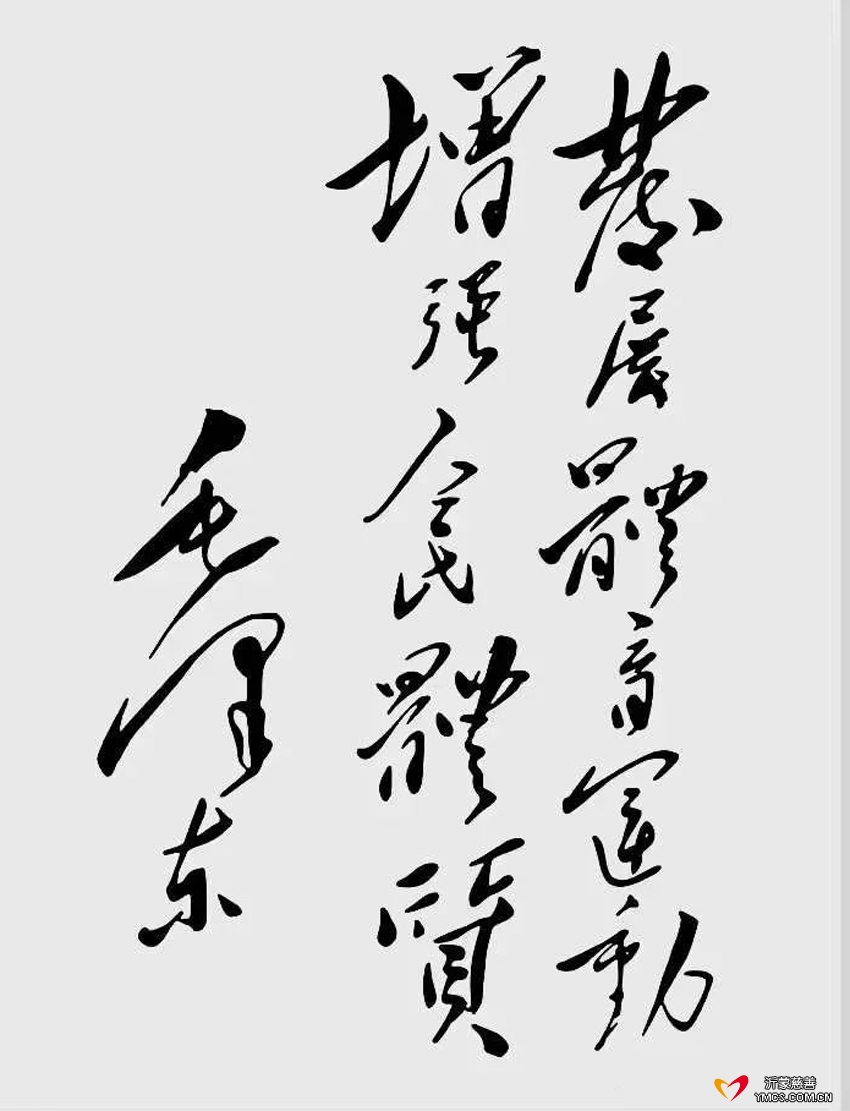 發展體育運動
增強人民體質
毛泽东
沂蒙慈善
YMCS.COM.CN